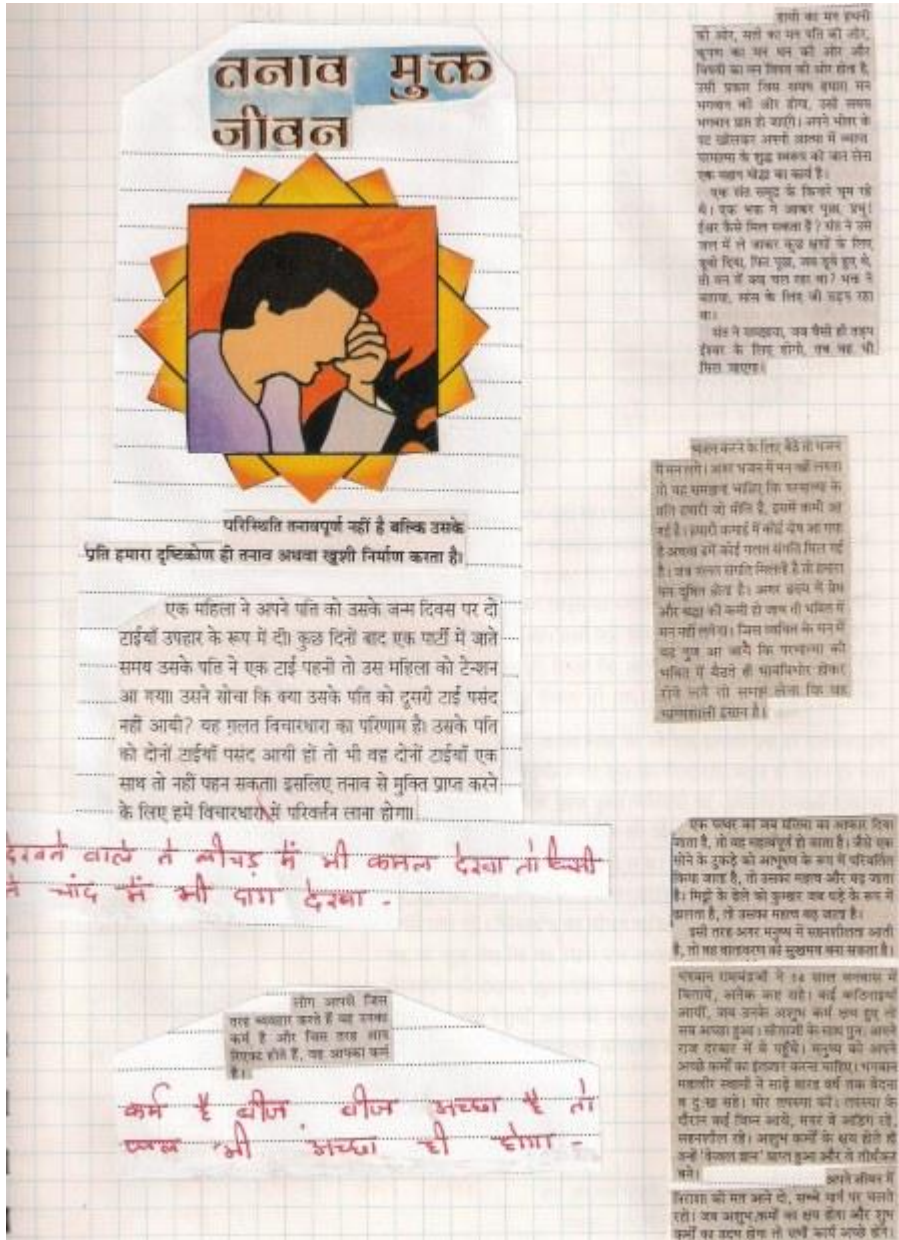 तनाव मुक्त
जीवन
परिस्थिति तनावपूर्ण नहीं है बल्कि उसके
प्रति हमारा दृष्टिकोण ही तनाव अथवा खुशी निर्माण करता है।
एक महिला ने अपने पति को उसके जन्म दिवस पर दो
टाईयाँ उपहार के रूप में दी। कुछ दिनों बाद एक पार्टी में जाते
समय उसके पति ने एक टाई पहनी तो उस महिला को टेन्शन
आ गया। उसने सोचा कि क्या उसके पति को दूसरी टाई पसंद
नहीं आयी? यह ग़लत विचारधारा का परिणाम है। उसके पति
को दोनों टाईयाँ पसंद आयी हों तो भी वह दोनों टाईयाँ एक
साथ तो नहीं पहन सकता। इसलिए तनाव से मुक्ति प्राप्त करने
के लिए हमें विचारधारा में परिवर्तन लाना होगा।
वाले ने कीचड़ में भी कमल देखा तो किसी
ने चांद में भी दाग देखा -
लोग आपसे जिस
तरह व्यवहार करते हैं वह उनका
कर्म है और जिस तरह आप
रिएक्ट होते हैं, वह आपका कर्म
है।
कर्म है बीज, बीज अच्छा है तो
फल भी अच्छा ही होगा -
हाथी का मन हथनी
की ओर, सती का मन पति की ओर,
कृपण का मन धन की ओर और
विषयी का मन विषय की ओर होता है,
उसी प्रकार जिस समय हमारा मन
भगवान की ओर होगा, उसी समय
भगवान प्राप्त हो जाएंगे। अपने भीतर के
पट खोलकर अपनी आत्मा में व्याप्त
परमात्मा के शुद्ध स्वरूप को जान लेना
एक महान योद्धा का कार्य है।
एक संत समुद्र के किनारे घूम रहे
थे। एक भक्त ने आकर पूछा, प्रभु!
ईश्वर कैसे मिल सकता है? संत ने उसे
जल में ले जाकर कुछ क्षणों के लिए
डुबो दिया, फिर पूछा, जब डूबे हुए थे,
तो मन में क्या चल रहा था? भक्त ने
बताया, सांस के लिए जी तड़प रहा
था।
संत ने समझाया, जब वैसी ही तड़प
ईश्वर के लिए होगी, तब वह भी
मिल जाएगा।
भजन करने के लिए बैठे तो भजन
में मन लगे। अगर भजन में मन नहीं लगता
तो यह समझना चाहिए कि परमात्मा के
प्रति हमारी जो प्रीति है, इसमें कमी आ
गई है। हमारी कमाई में कोई दोष आ गया
है अथवा हमें कोई गलत संगति मिल गई
है। जब गलत संगति मिलती है तो हमारा
मन दूषित होता है। अगर हृदय में प्रेम
और श्रद्धा की कमी हो जाय तो भक्ति में
मन नहीं लगेगा। जिस व्यक्ति के मन में
यह गुण आ जाये कि परमात्मा की
भक्ति में बैठते ही भावविभोर होकर
रोने लगे तो समझ लेना कि वह
भाग्यशाली इंसान है।
एक पत्थर को जब प्रतिमा का आकार दिया
जाता है, तो वह महत्वपूर्ण हो जाता है। जैसे एक
सोने के टुकड़े को आभूषण के रूप में परिवर्तित
किया जाता है, तो उसका महत्व और बढ़ जाता
है। मिट्टी के ढेले को कुम्हार जब घड़े के रूप में
ढालता है, तो उसका महत्व बढ़ जाता है।
इसी तरह अगर मनुष्य में सहनशीलता आती
है, तो वह वातावरण को सुखमय बना सकता है।
भगवान रामचंद्रजी ने 14 साल वनवास में
बिताये, अनेक कष्ट सहे। कई कठिनाइयाँ
आयीं, जब उनके अशुभ कर्म क्षय हुए तो
सब अच्छा हुआ। सीताजी के साथ पुनः अपने
राज दरबार में वे पहुँचे। मनुष्य को अपने
अच्छे कर्मों का इंतजार करना चाहिए। भगवान
महावीर स्वामी ने साढ़े बारह वर्ष तक वेदना
व दुःख सहे। घोर तपस्या की। तपस्या के
दौरान कई विघ्न आये, मगर वे अडिग रहे,
सहनशील रहे। अशुभ कर्मों के क्षय होते ही
उन्हें 'केवल ज्ञान' प्राप्त हुआ और वे तीर्थंकर
बने।
अपने जीवन में
निराशा को मत आने दो, सच्चे मार्ग पर चलते
रहो। जब अशुभ कर्मों का क्षय होगा और शुभ
कर्मों का उदय होगा तो सभी कार्य अच्छे होंगे।